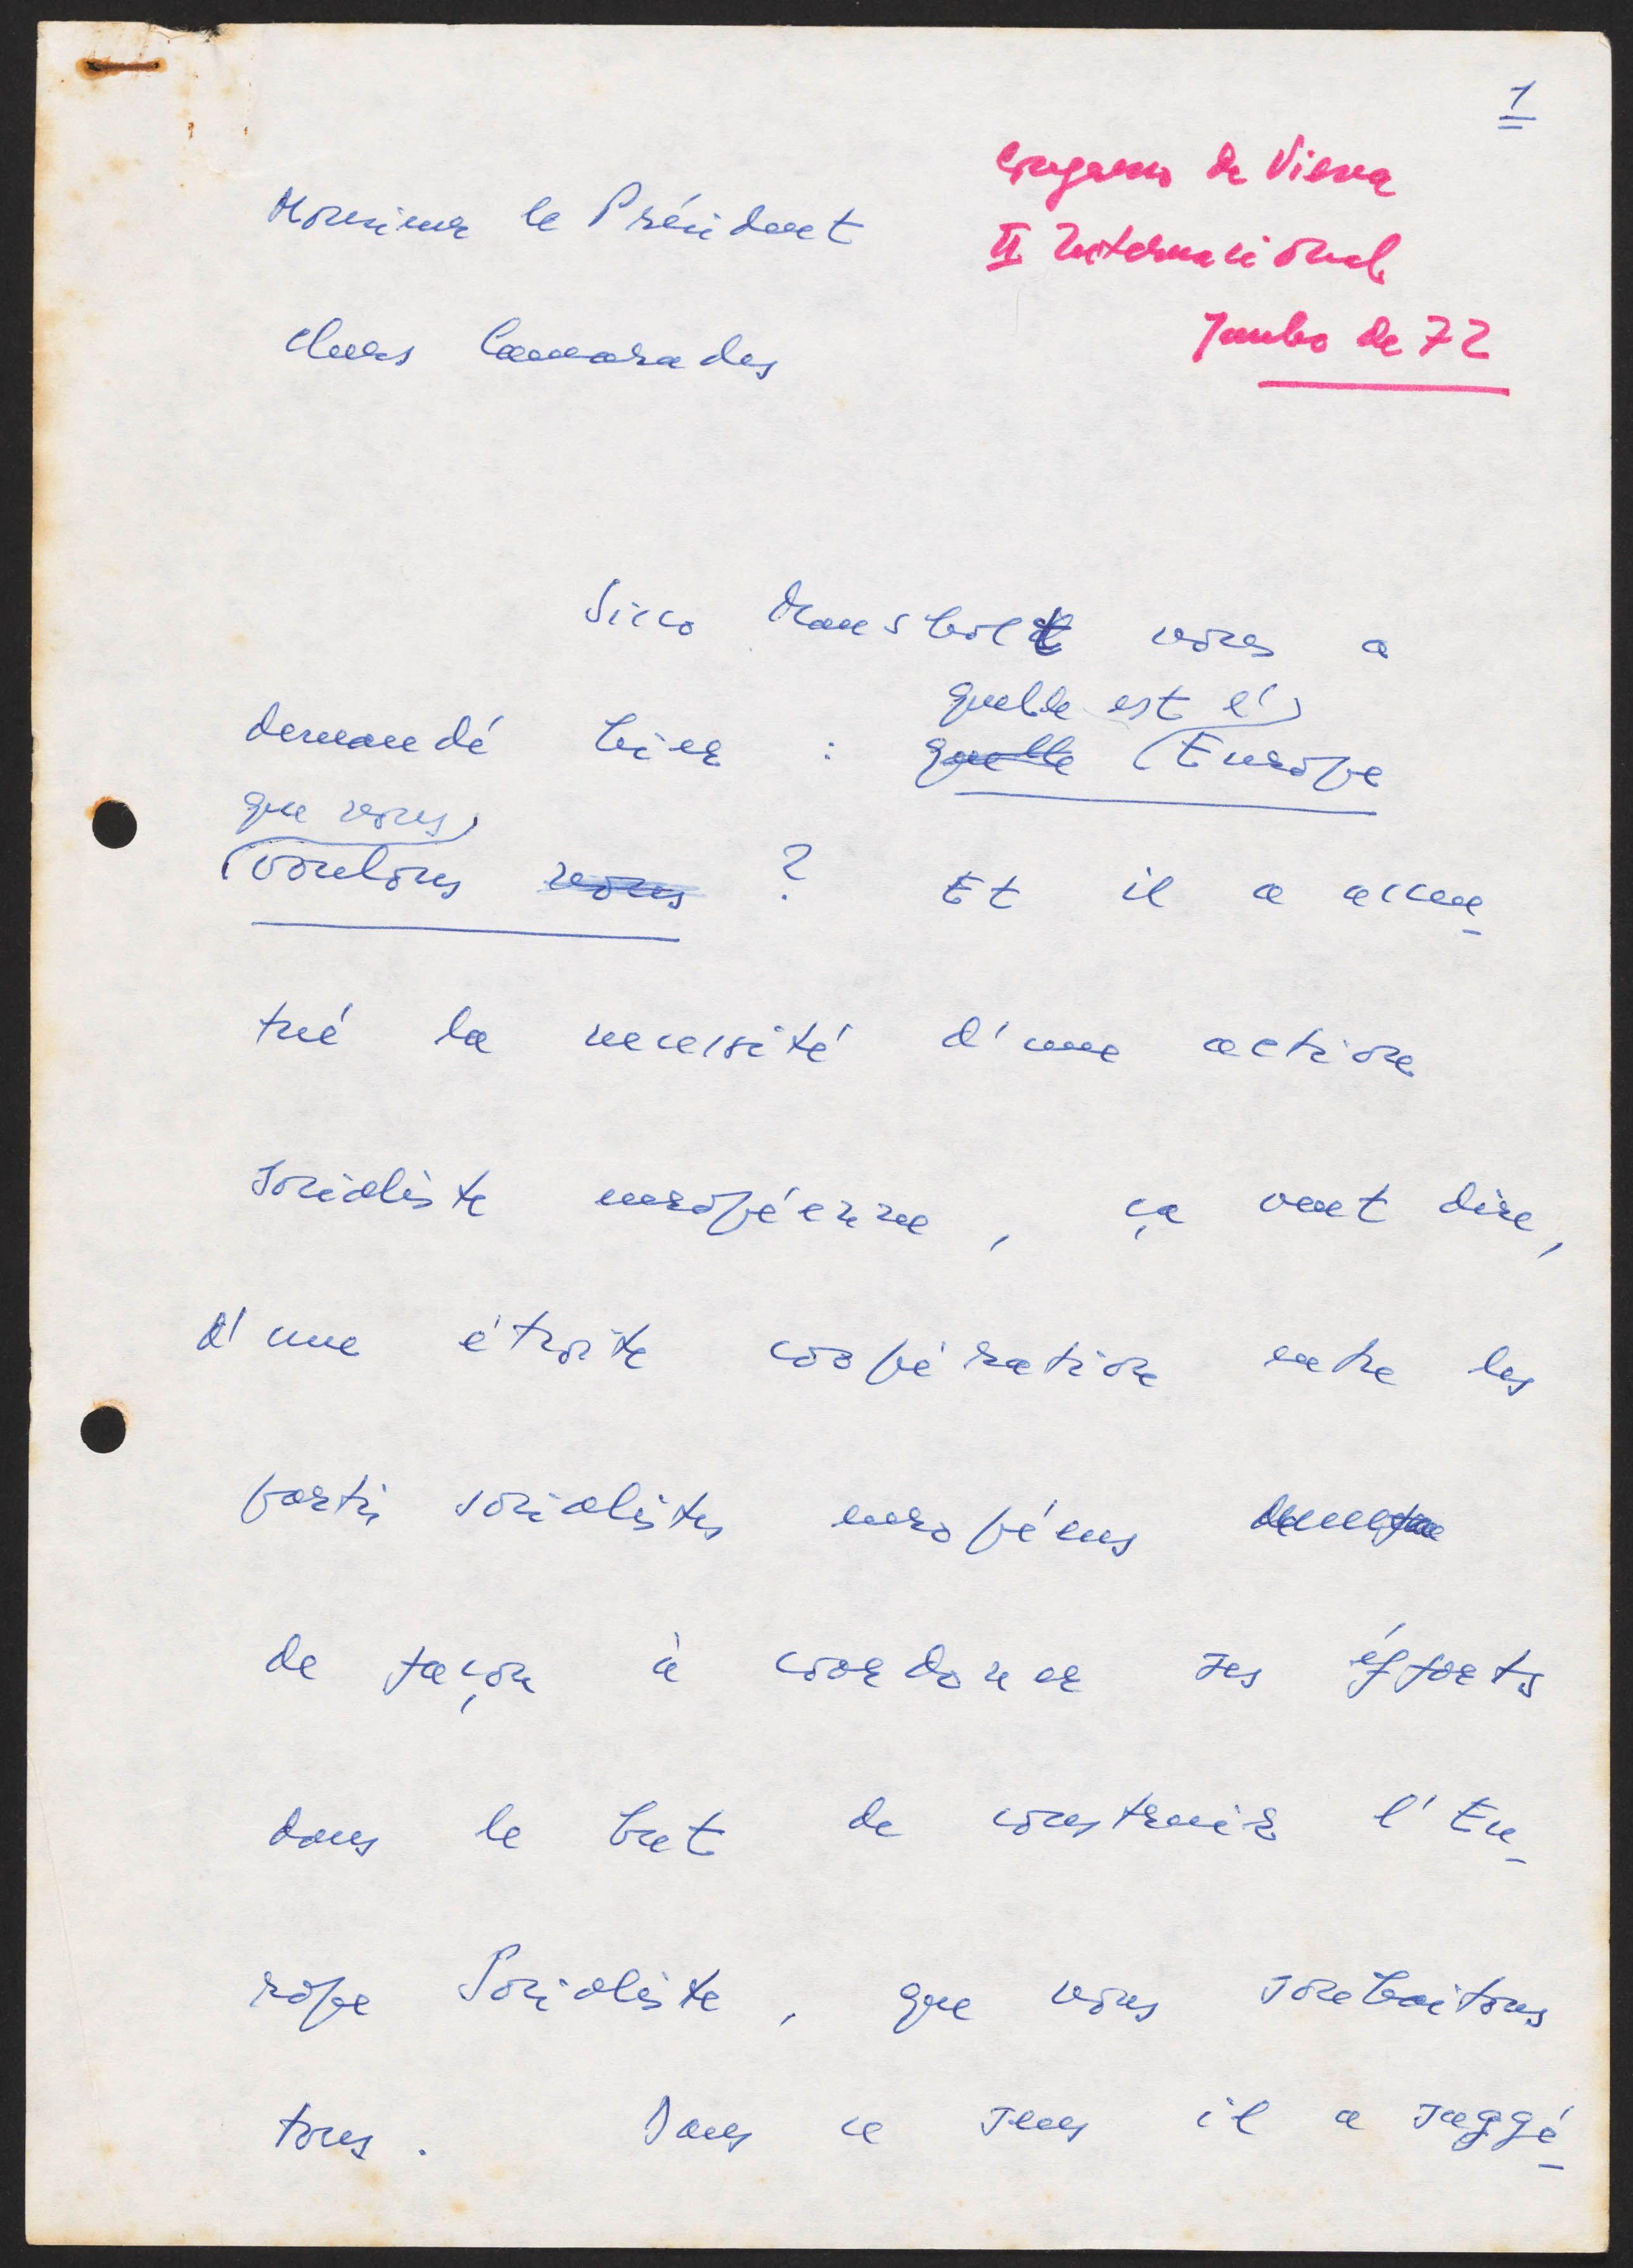 1
Congresso de Viena
II Internacional
Junho de 72
Monsieur le Président
Chers Camarades
Sicco Mansholt nous a
quelle est l'
demandé hier : quelle Europe
que nous
voulons nous ? Et il a accen-
tué la necessité d'une action
socialiste européenne, ça veut dire,
d'une étroite coopération entre les
partis socialistes européens
de façon à coordoner ses éfforts
dans le but de construir l'Eu-
rope Socialiste, que nous souhaitons
tous. Dans ce sens il a suggé-